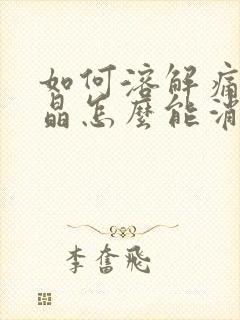 如何溶解痛
晶怎麼能消
李奮飛